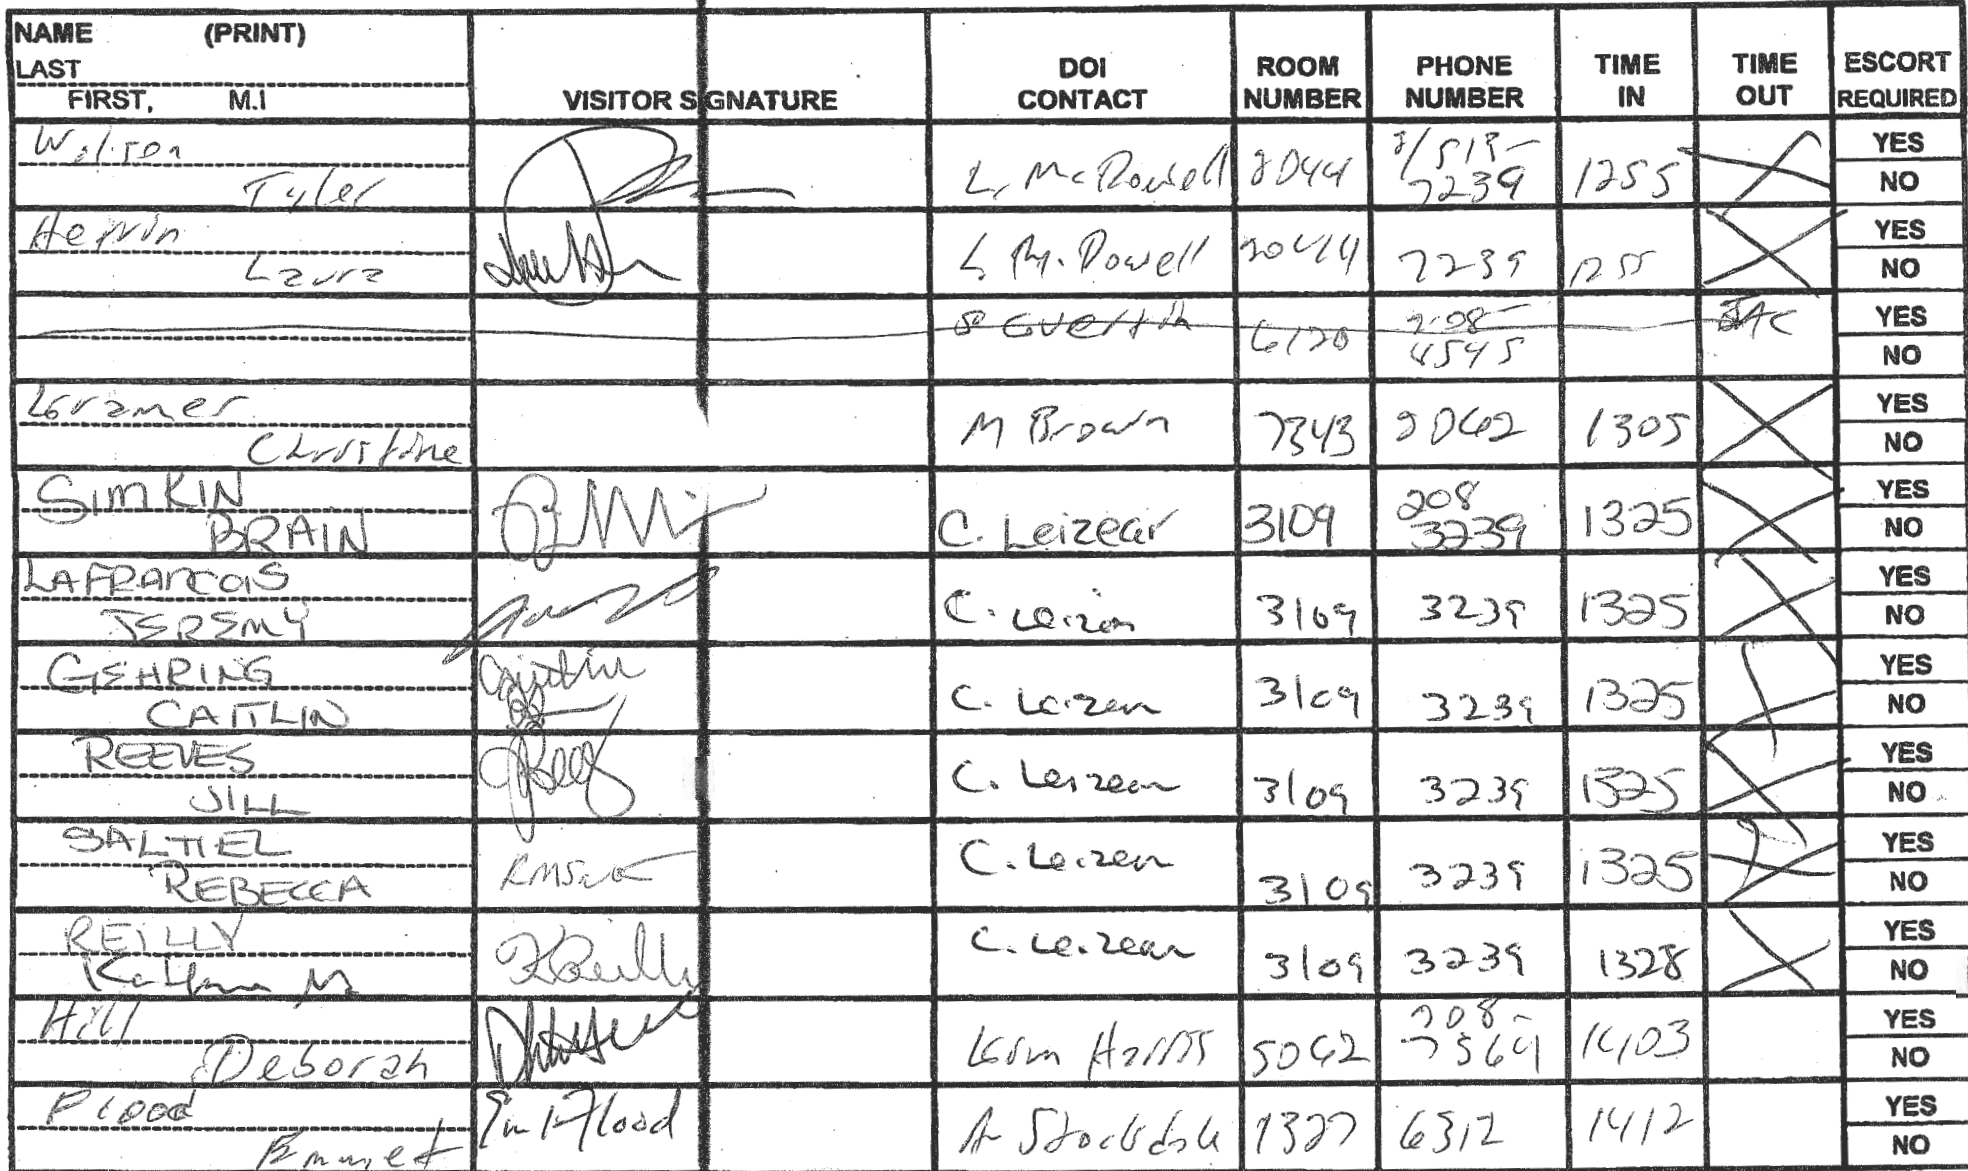 NAME (PRINT)
LAST
FIRST, M.I
VISITOR SIGNATURE
DOI CONTACT
ROOM NUMBER
PHONE NUMBER
TIME IN
TIME OUT
ESCORT REQUIRED
Tyler L. McDowell 2044 7239 1255 YES NO
Laura L McDowell 2044 7239 1255 YES NO
6120 208- 4545 YES NO
Kramer
Christine M Brown 7343 2062 1305 YES NO
SIMKIN
BRAIN C. Leizear 3109 208 3239 1325 YES NO
LAFRANCOIS
JEREMY C. Leizear 3109 3239 1325 YES NO
GEHRING
CAITLIN C. Leizear 3109 3239 1325 YES NO
REEVES
JILL C. Leizear 3109 3239 1325 YES NO
SALTIEL
REBECCA C. Leizear 3109 3239 1325 YES NO
REILLY
M KReilly C. Leizear 3109 3239 1328 YES NO
Hill
Deborah Harris 5062 208- 7564 1403 YES NO
Flood
Emmet Flood 6312 1412 YES NO